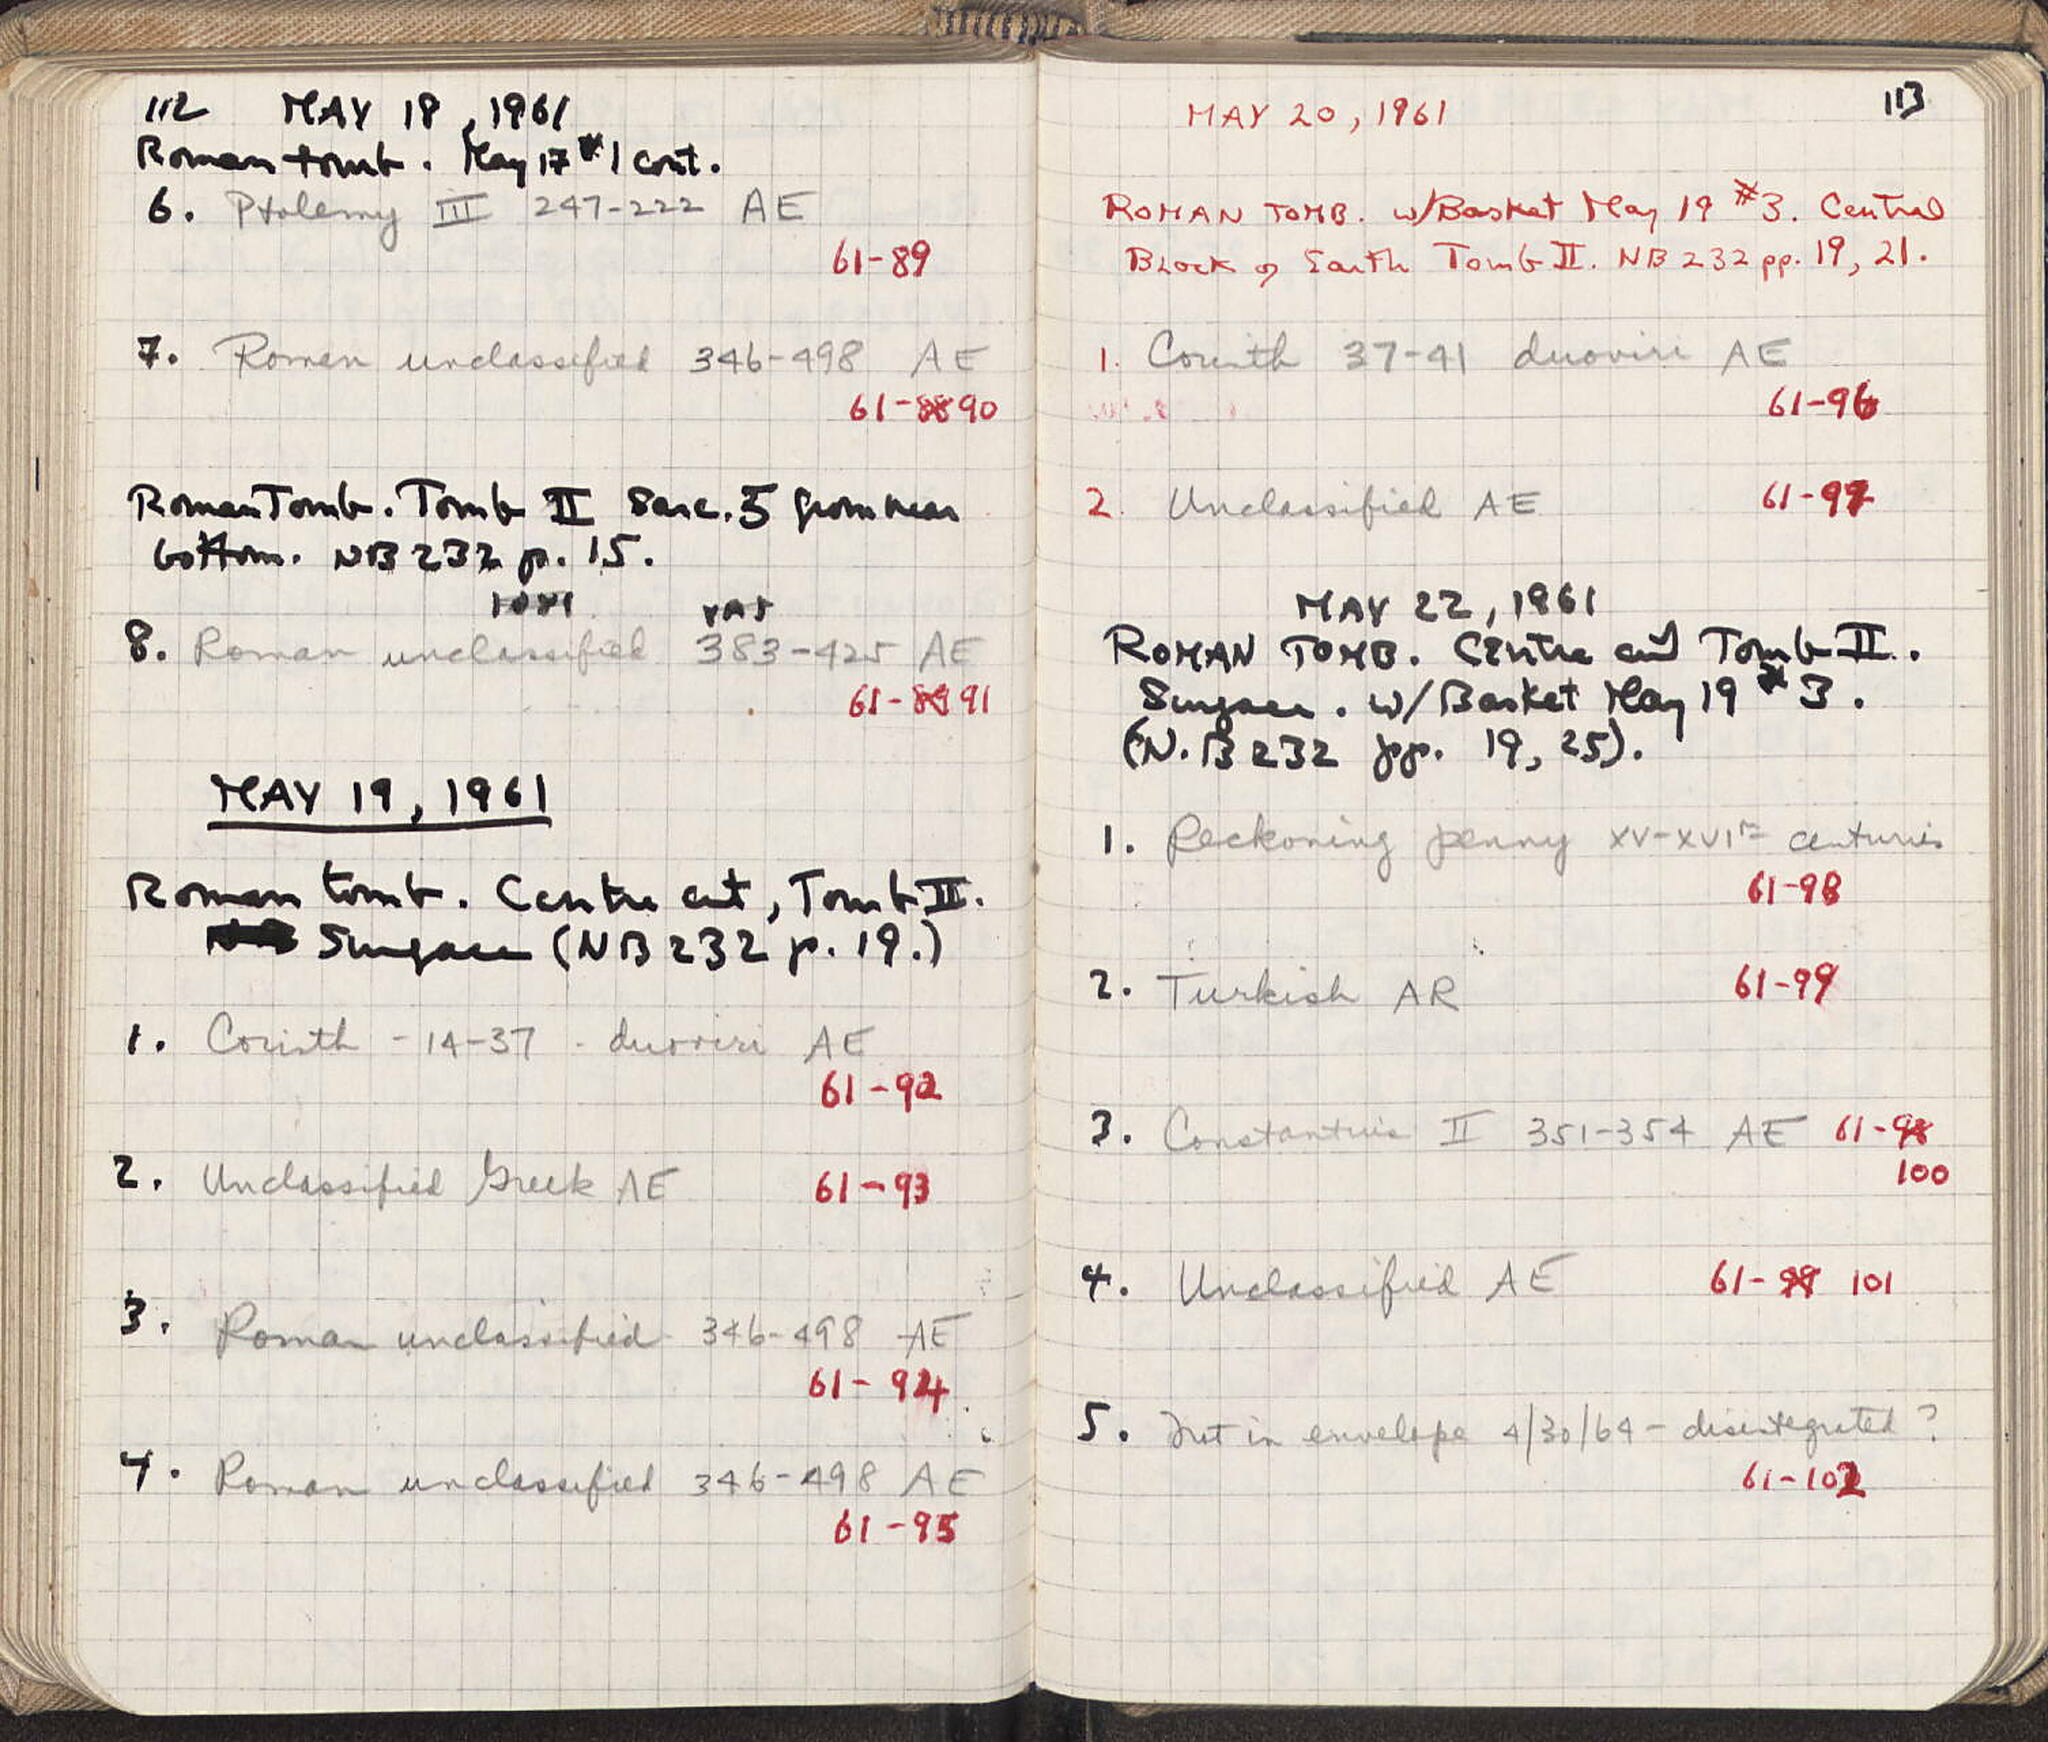 112 MAY 18, 1961
Roman tomb. May 17 #1 cont.
6. Ptolemy III 247-222 AE
61-89
7. Roman unclassified 346-498 AE
61-88 90
Roman Tomb. Tomb II Sarc. 5 from near
bottom. NB 232 p. 15.
8. Roman unclassified 383-425 AE
61-89 91
MAY 19, 1961
Roman tomb. Centre cut, Tomb II.
Surface (NB 232 p. 19.)
1. Corinth - 14-37 - duoviri AE
61-92
2. Unclassified Greek AE 61-93
3. Roman unclassified 346-498 AE
61-94
4. Roman unclassified 346-498 AE
61-95
113
MAY 20, 1961
ROMAN TOMB. w/Basket May 19 #3. Central
Block of Earth Tomb II. NB 232 pp. 19, 21.
1. Corinth 37-41 duoviri AE
61-96
2. Unclassified AE 61-97
MAY 22, 1961
ROMAN TOMB. Centre cut Tomb II.
Surface. w/Basket May 19 #3.
(N.B 232 pp. 19, 25).
1. Reckoning penny XV-XVIth centuries
61-98
2. Turkish AR 61-99
3. Constantius II 351-354 AE 61-98
100
4. Unclassified AE 61-99 101
5. Not in envelope 4/30/64 - disintegrated?
61-102